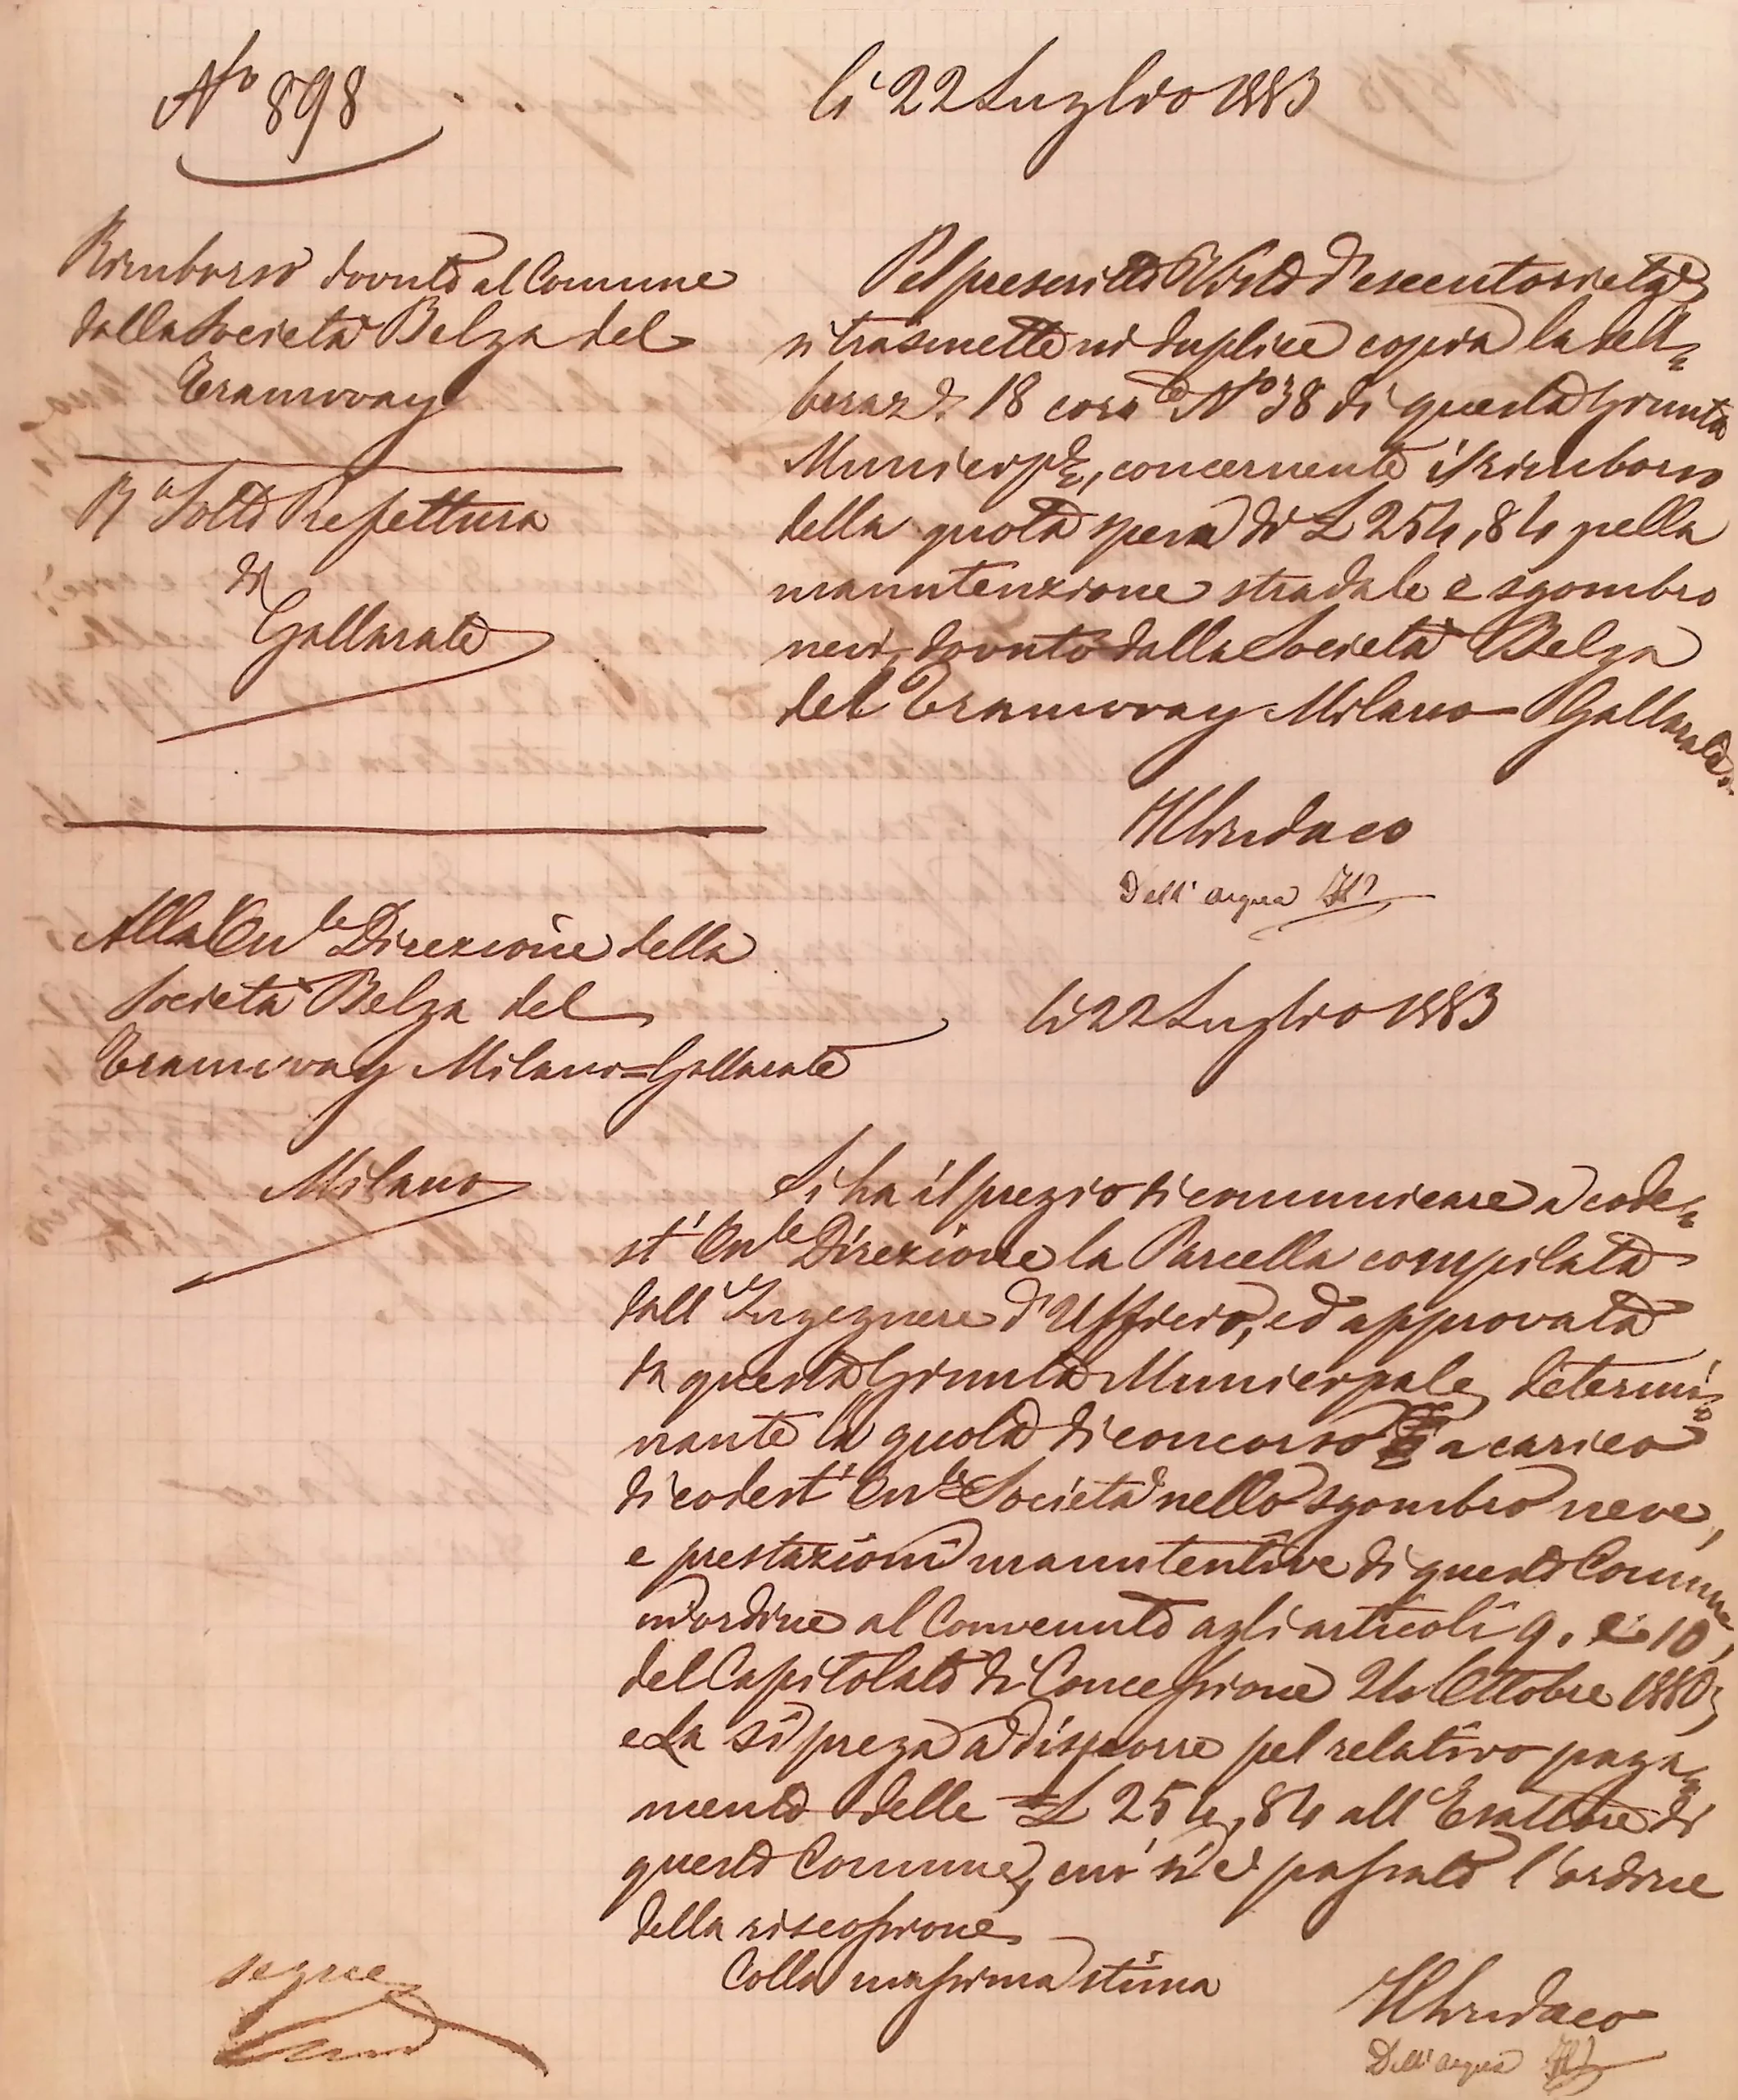 N.o 898
lì 22 Luglio 1883
Rimborso dovuto al Comune
dalla Società Belga del
Tramway
R.a Sotto Prefettura
di
Gallarate
Pel prescritto Visto d'esecutorietà,
si trasmette in duplice copia la deli=
beraz.e 18 corr.te N.o 38 di questa Giunta
Municip.le, concernente il rimborso
della quota spesa di £ 254,84 pella
manutenzione stradale e sgombro
nevi, dovuto dalla Società Belga
del Tramway Milano-Gallarate.
Il Sindaco
Dell'Acqua
Alla On.le Direzione della
Società Belga del
Tramway Milano=Gallarate
Milano
lì 22 Luglio 1883
Si ha il pregio di comunicare a code=
st'On.le Direzione la Parcella compilata
dall'Ingegnere d'Ufficio, ed approvata
da questa Giunta Municipale, determi=
nante la quota di concorso a carico
di codest'On.le Società nello sgombro neve,
e prestazioni manutentive di questo Comune
in ordine al Convenuto agli articoli 9. e 10,
del Capitolato di Concessione 24 Ottobre 1880;
e La si prega a disporre pel relativo paga=
mento delle £ 254,84 all'Esattore di
questo Comune, cui si è passato l'ordine
della riscossione.
Colla massima stima
Il Sindaco
Dell'Acqua
segue